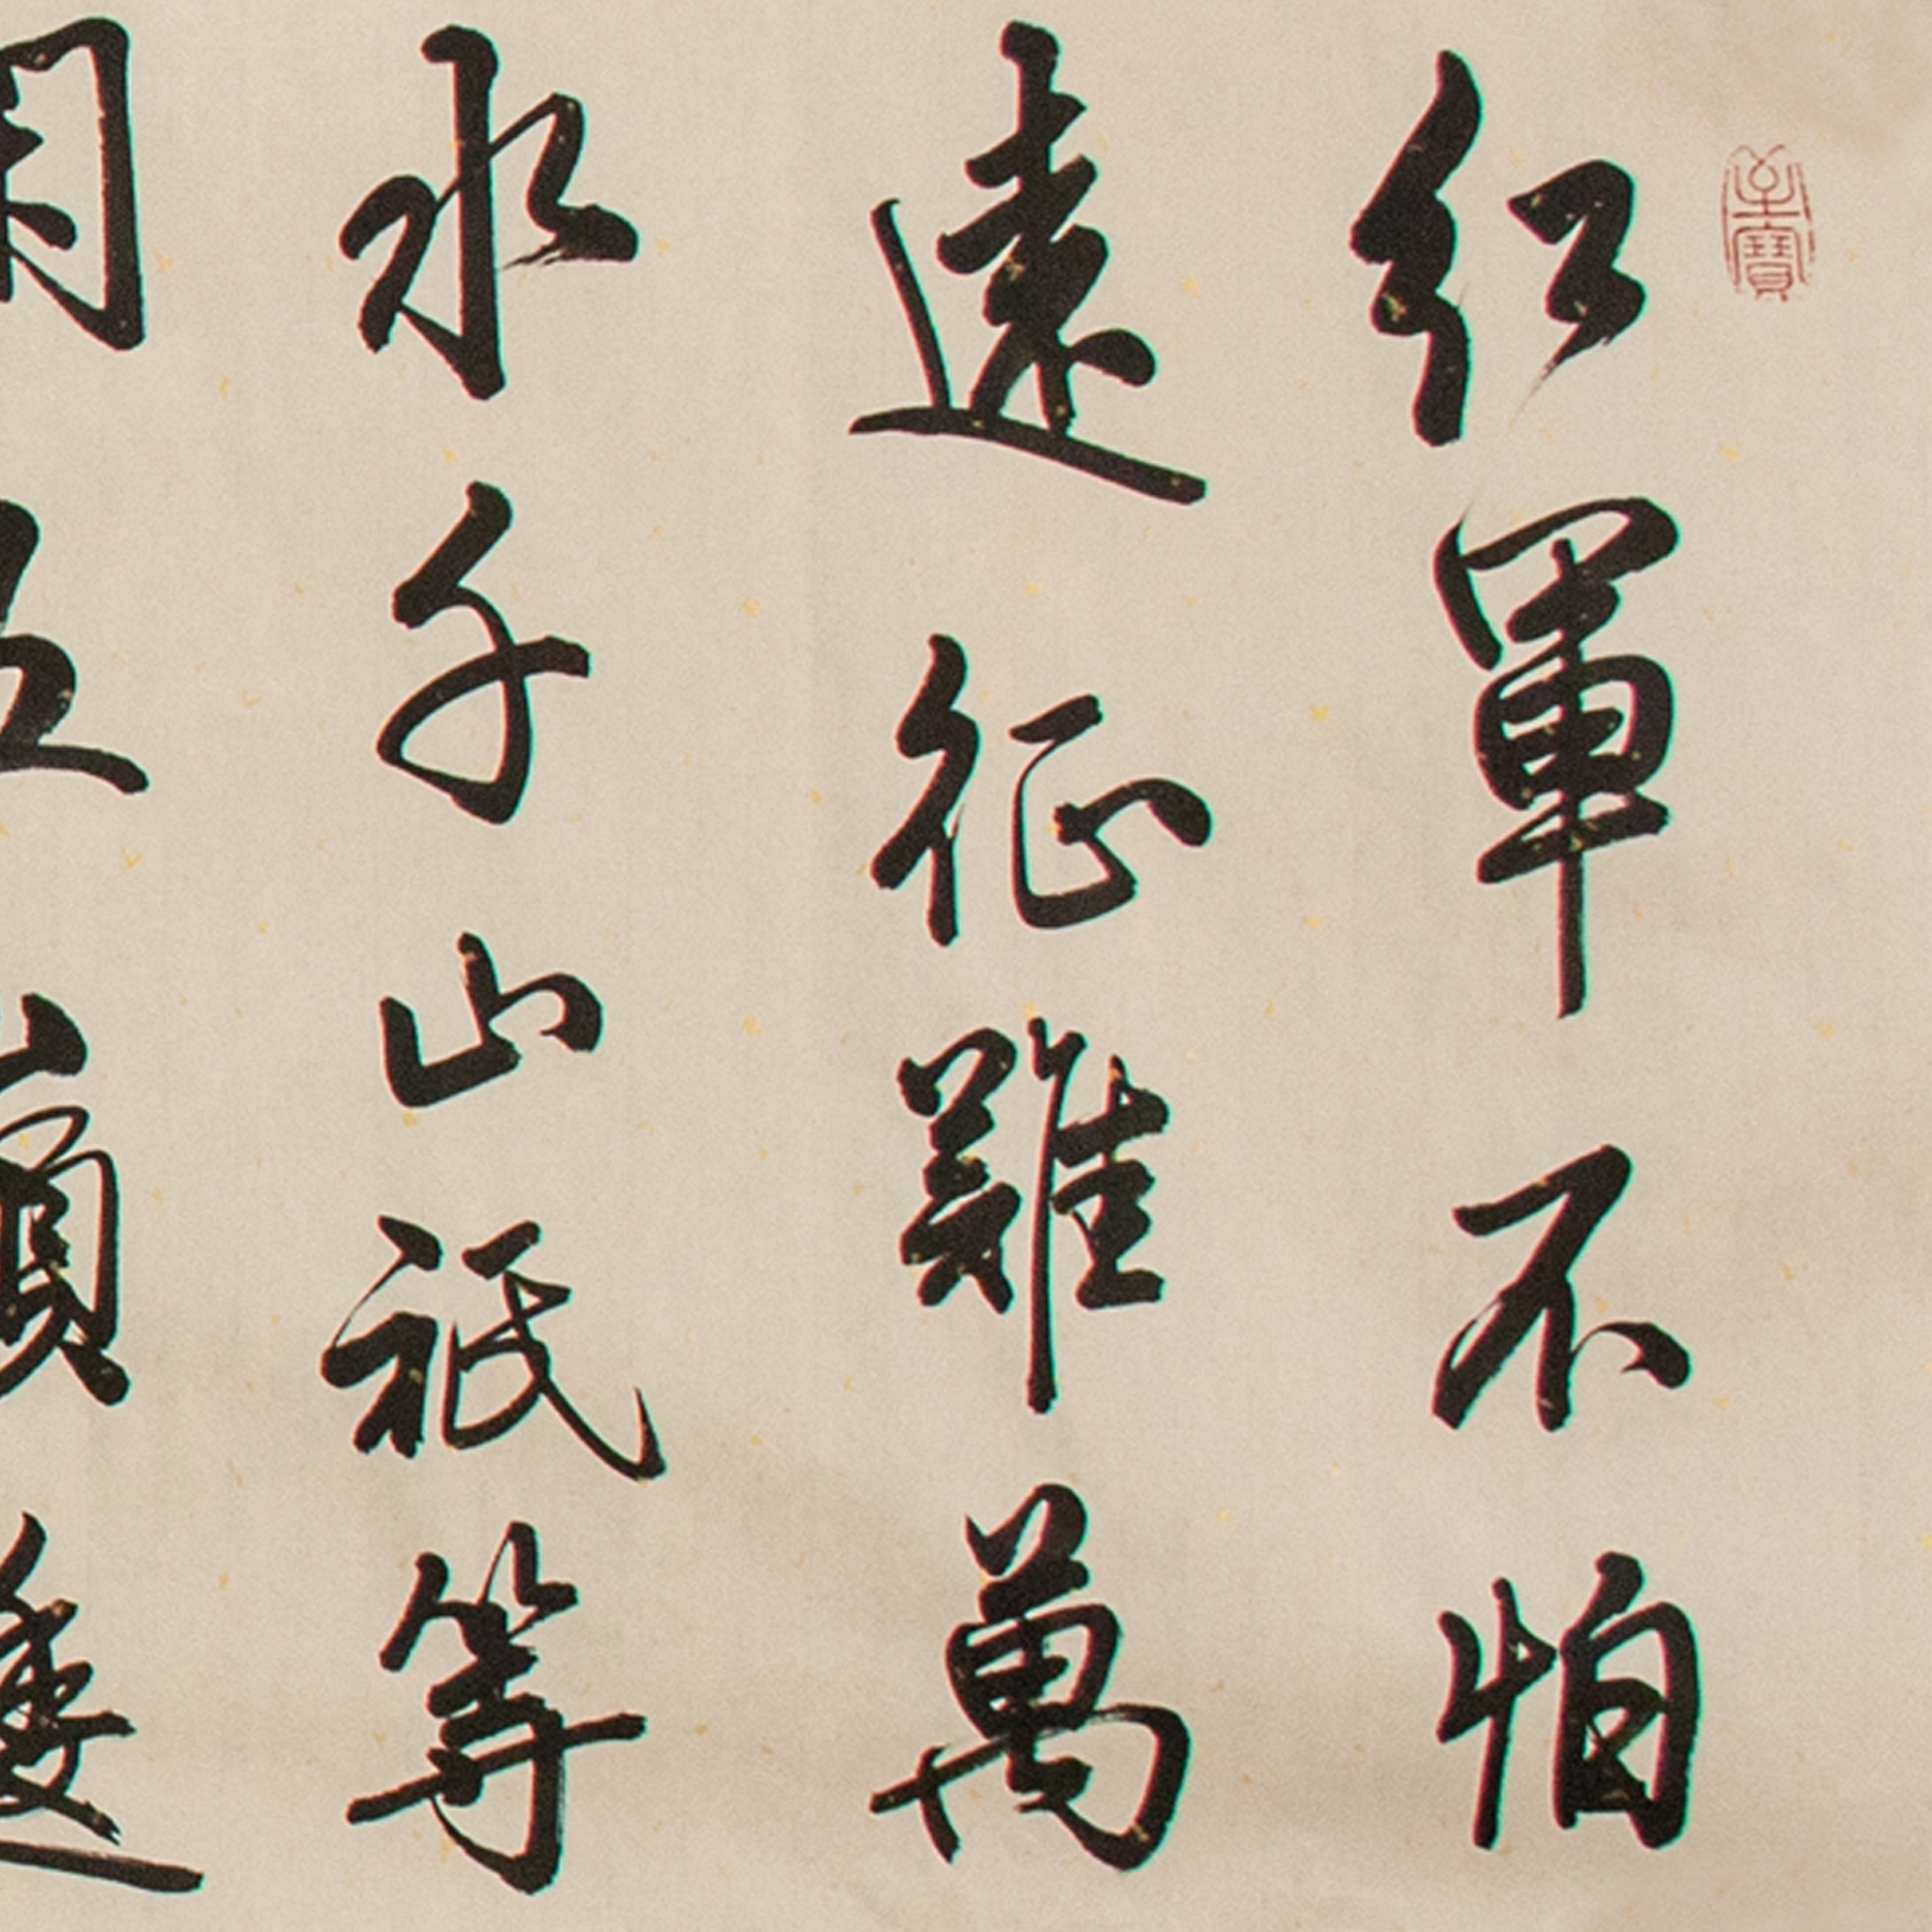 至寶
紅軍不怕
遠征難萬
水千山祇等
閑五嶺逶